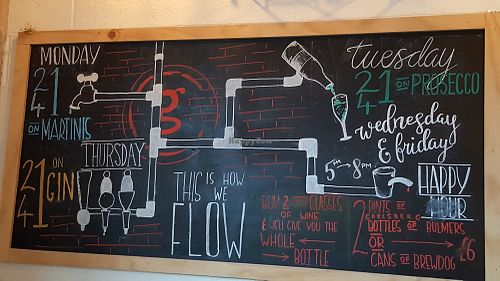 MONDAY
2
4
1
ON
MARTINIS
THURSDAY
2
4
1
ON
GIN
g
HappyCow
THIS IS HOW
WE
FLOW
tuesday
2
4
1
ON PROSECCO
wednesday
& friday
5PM - 8PM
HAPPY
HOUR
BUY 2 GLASSES
OF WINE
& WE'LL GIVE YOU THE
WHOLE
BOTTLE
2 PINTS OF
CARLSBERG
BOTTLES OF BULMERS
OR
CANS OF BREWDOG
£6